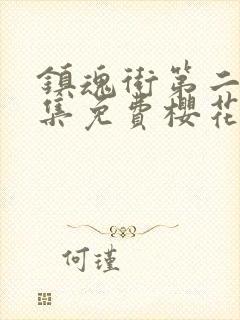 鎮魂街第二
集免費櫻花
何瑾